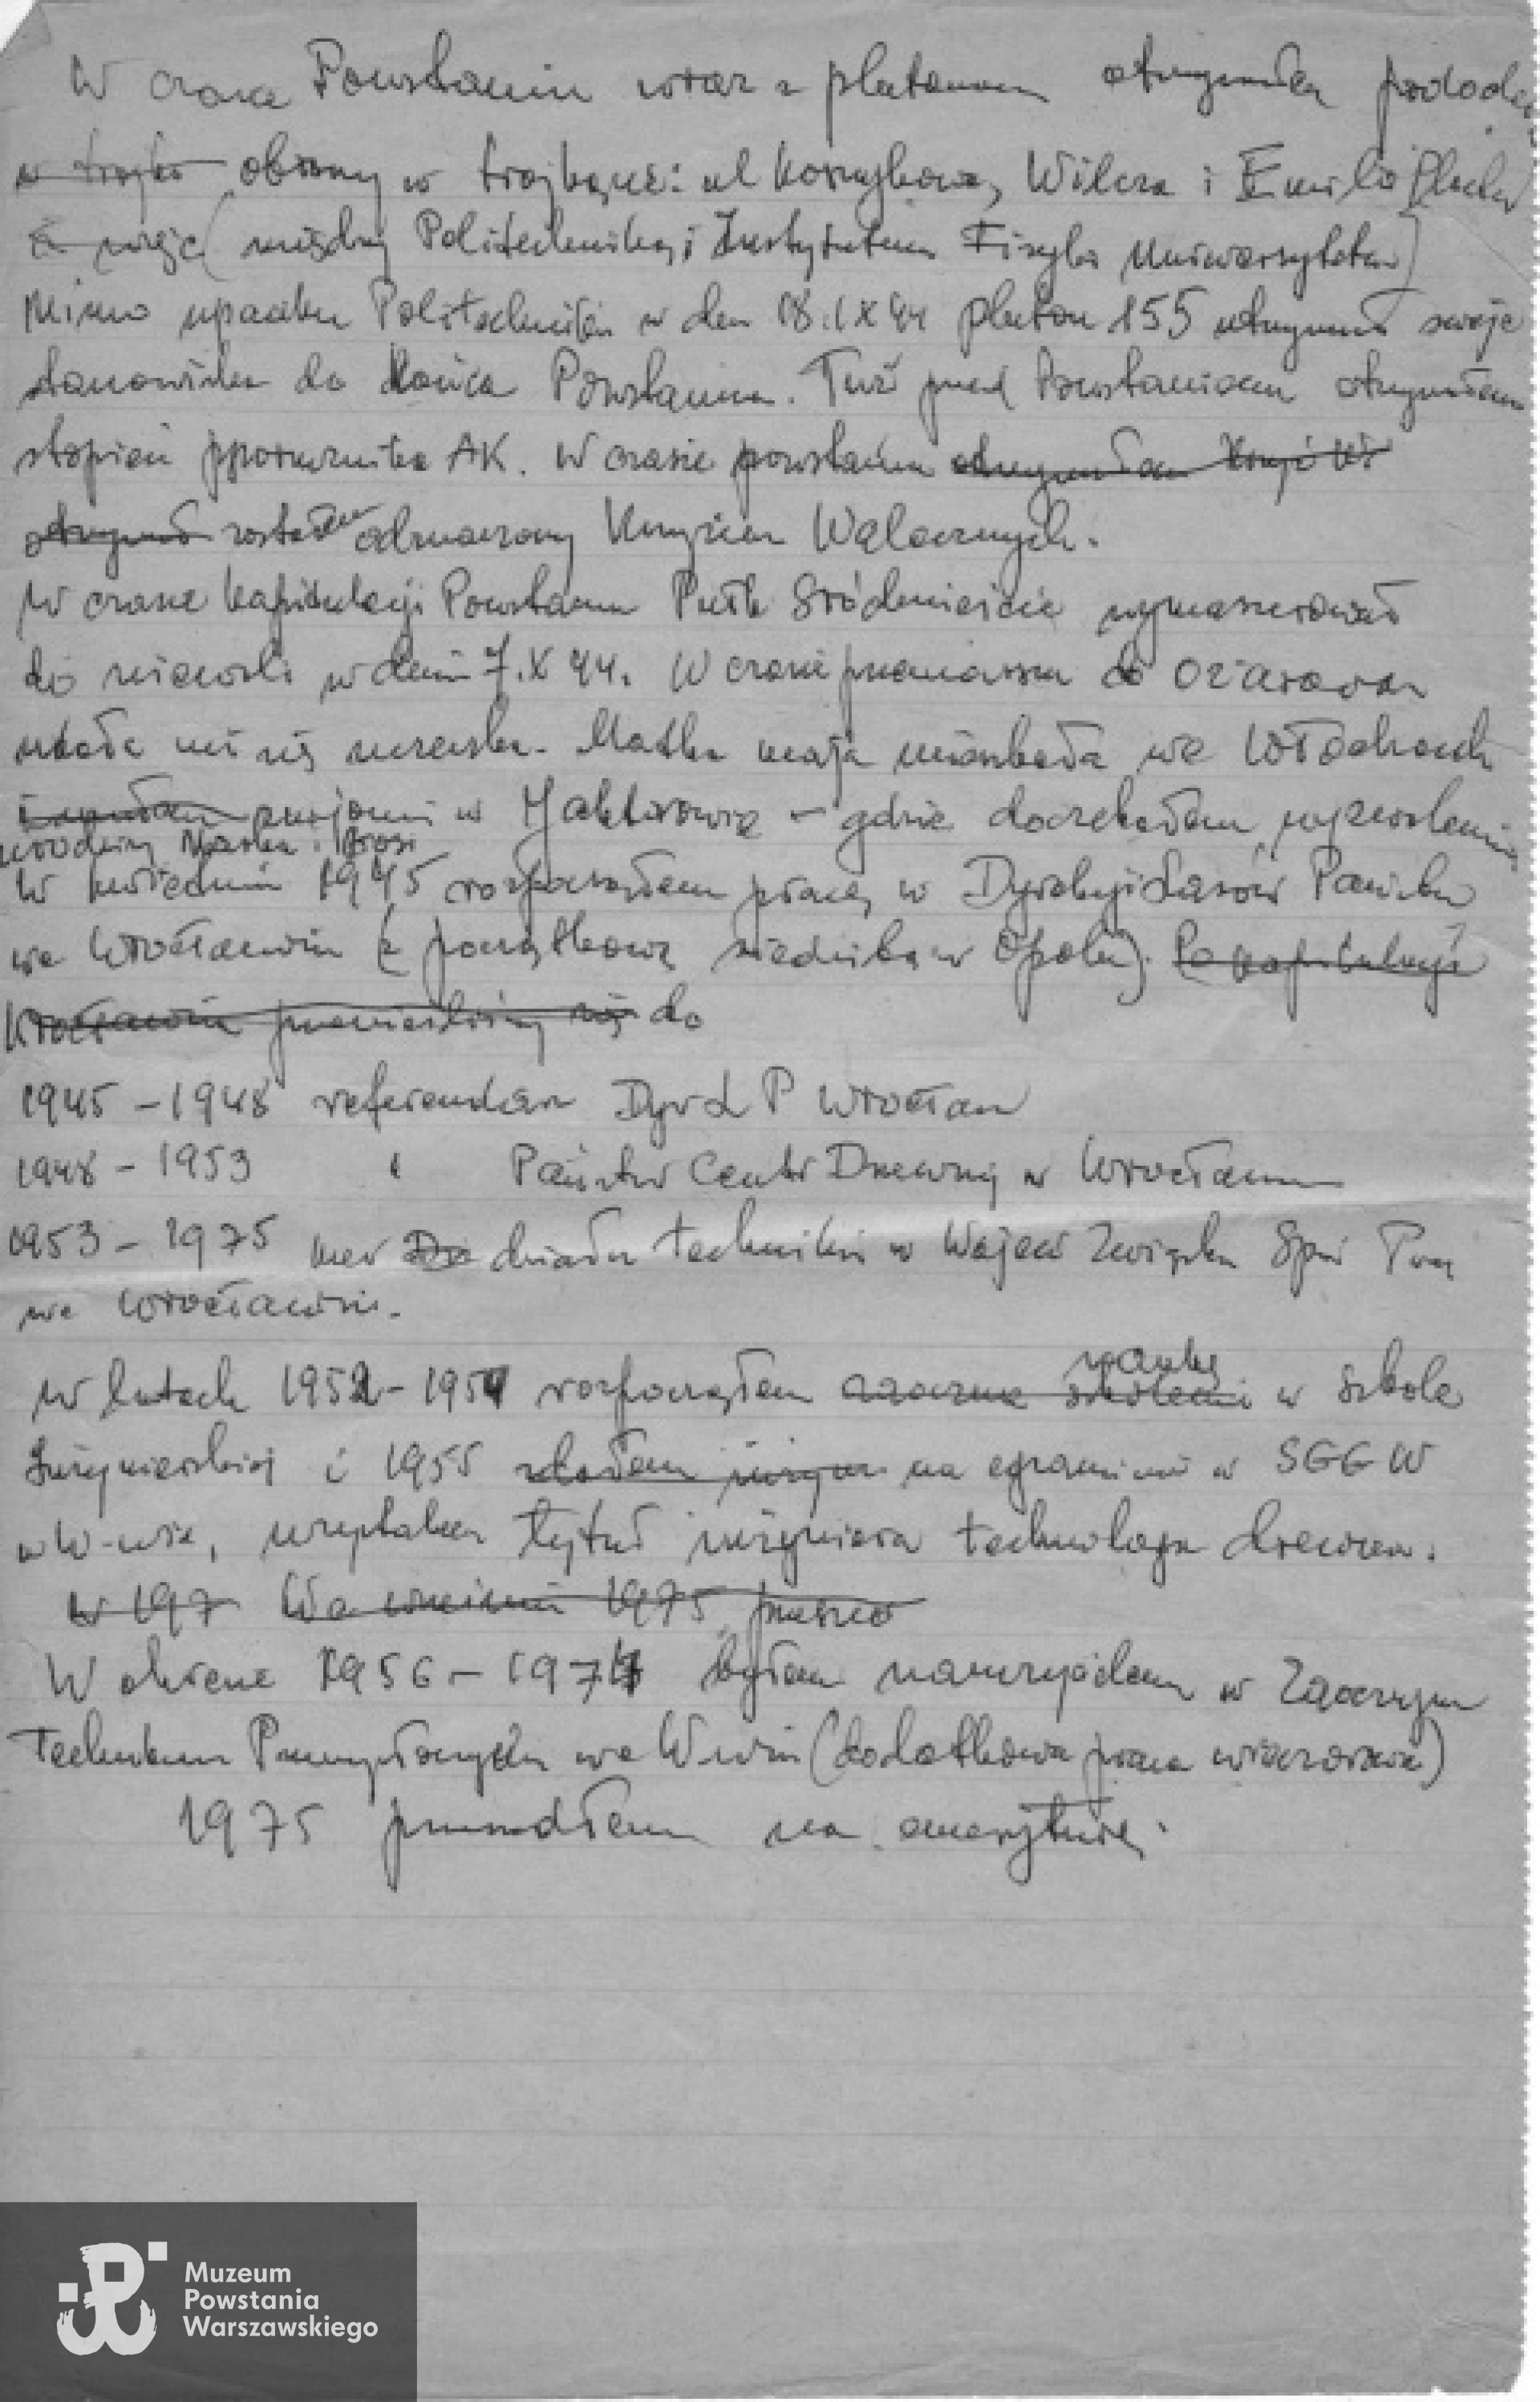 W czasie Powstania wraz z plutonem otrzymałem pododci
w trójką obrony w trójkącie: ul Koszykowa, Wilcza i Emilii Plater
a więc (między Politechniką i Instytutem Fizyki Uniwersytetu)
Mimo upadku Politechniki w dn 18.IX 44 pluton 155 utrzymał swoje
stanowiska do końca Powstania. Tuż przed Powstaniem otrzymałem
stopień pporucznika AK. W czasie powstania otrzymałem Krzyż
otrzymał zostałem odznaczony Krzyżem Walecznych.
W czasie kapitulacji Powstania Pułk Śródmieście wymaszerował
do niewoli w dniu 7.X 44. W czasie przemarszu do Ożarowa
udała mi się ucieczka. Matka moja mieszkała we Włochach
znajomi w Jaktorowie – gdzie doczekałem wyzwolenia
W kwietniu 1945 rozpocząłem pracę w Dyrekcji Lasów Państw
we Wrocławiu (z początkową siedzibą w Opolu). Po kapitulacji
Wrocławia przenieśliśmy się do
1945 – 1948 referendarz Dyr L P Wrocław
1948 – 1953 " Państw Centr Drzewnej w Wrocławiu
1953 – 1975 kier Dz działu techniki w Wojew Związku Spół Pracy
we Wrocławiu.
W latach 1952 – 1954 rozpocząłem zaoczne szkolenie naukę w Szkole
Inżynierskiej i 1955 zdałem inżyn na egzaminie w SGGW
w W-wie, uzyskałem tytuł inżyniera technologa drewna.
w 197 We wrześniu 1975 przesze
W okresie 1956 – 1974 byłem nauczycielem w Zaocznym
Technikum Przemysłowym we W-wiu (dodatkowa praca wieczorowa)
1975 przeszedłem na emeryturę.
Muzeum
Powstania
Warszawskiego